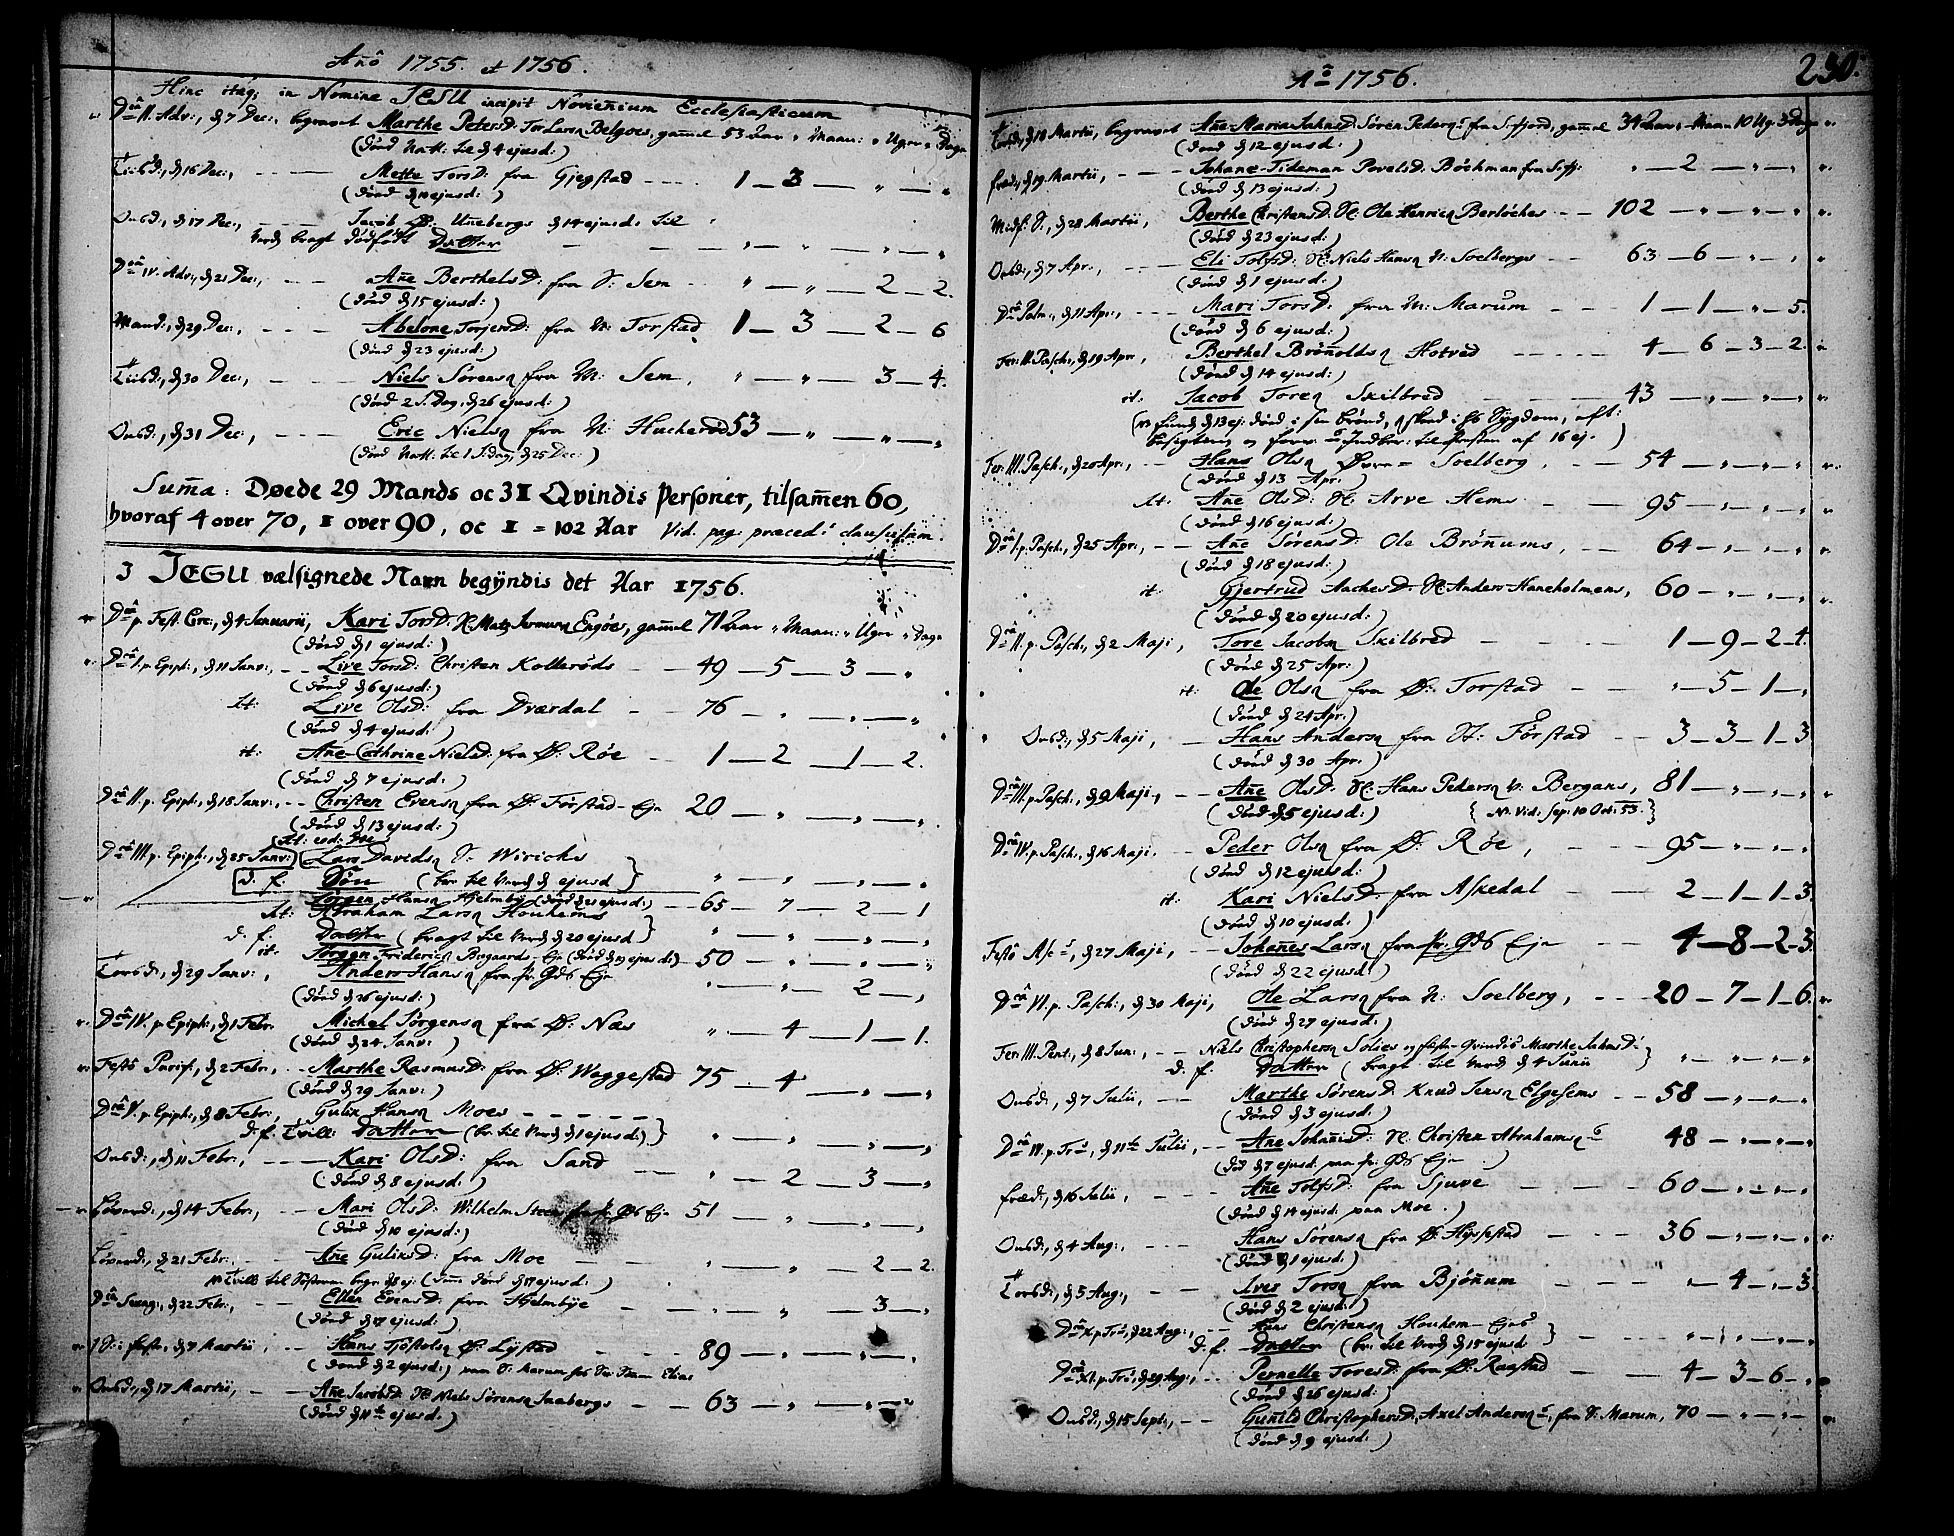 Año 1755. et 1756.
Hinc itaq; in Nomine JESU incipit Noviennium Ecclesiasticum
Dn̄câ II. Adv:, d 7 Dec:, begravet Marthe PetersD: Tor Larsøn Belgoes, gammel 53 Aar " Maan: " Uger " Dage
(død Natt: til d 4 ejusd:)
Tiisd:, d 16 Dec:, — Mette TorsD: fra Gjegstad — 1 — 3 — " — "
(død d 11 ejusd:)
Onsd:, d 17 Dec:, — Jacob Ø: Uñebergs d 14 ejusd: til
Jord bragt dødfødt Datter — " — " — " — "
Dn̄câ IV. Adv:, d 21 Dec:, — Añe BerthelsD: fra S: Sem — " — " — 2 — 2.
(død d 15 ejusd:)
Mand:, d 29 Dec:, — Abelone TorjersD: fra N: Torstad 1 — 3 — 2 — 6
(død d 23 ejusd:)
Tiisd:, d 30 Dec:, — Niels Sørensøn fra N: Sem, " — " — 3 — 4.
(død 2 J. Dag, d 26 ejusd:)
Onsd:, d 31 Dec:, — Eric Nielsøn fra N: Hucherød 53 — " — " — "
(død Natt: til 1 J: dag, d 25 Dec:)
Sum̃a: Døede 29 Mands oc 31 Qvindis Personer, tilsam̃en 60,
hvoraf 4 over 70, 1 over 90, oc 1 = 102 Aar Vid. pag. præced: clausulam.
J JESU vælsignede Navn begÿndis det Aar 1756.
Dn̄câ p. Fest. Circ:, d 4 Januarii, Kari TorsD: H. Matz Iversøn Engøes, gammel 71 Aar " Maan: " Uger " Dage
(død d 1 ejusd:)
Dn̄câ I. p. Epiph:, d 11 Janv:, — Live TorsD: Christen Kollerøds — 49 — 5 — 3 — "
(død d 6 ejusd:)
it: Live OlsD: fra Dværdal — 76 — " — " — "
(død d 4 ejusd:)
it: Añe-Cathrine NielsD: fra Ø: Røe — 1 — 2 — 1 — 2.
(død d 7 ejusd:)
Dn̄câ II. p. Epiph:, d 18 Janv:, — Christen Evensøn fra Ø: Førstad-Eje 20 — " — " — "
(død d 13 ejusd:)
Dn̄câ III. p. Epiph:, d 25 Janv:, Lars Davidsøn S: Wirichs
d. f. Søn (br. til Jord d ejusd) " — " — " — "
Jørgen Hansøn Hjelmbÿ (død d 21 ejusd:) — 65 — 7 — 2 — 1
it: Abraham Larsøn Houkems
d. f. Datter (bragt til Jord d 20 ejusd) " — " — " — "
it: Jørgen Friderici Bÿgaards-Eje (død d 19 ejusd:) — 50 — " — " — "
Torsd:, d 29 Janv:, Anders Hansøn fra Pr: Gds Eje " — " — 2 — "
(død d 26 ejusd:)
Dn̄câ IV. p. Epiph:, d 1 Febr: Michel Jørgensøn fra Ø: Næs " — 4 — 1 — 1.
(død d 24 Janv:)
Festô Purif:, d 2 Febr:, — Marthe RasmusD: fra Ø: Waggestad 75 — 4 — " — "
(død d 29 Janv:)
Dn̄câ V. p. Epiph:, d 8 Febr:, Gulik Hansøn Moes — — —
d. f. Tvill: Datter (br. til Jord d 1 ejusd:) " — " — " — "
Onsd:, d 11 Febr:, — Kari OlsD: fra Sand — " — 2 — 3 — "
(død d 8 ejusd:)
Løverd:, d 14 Febr:, — Mari OlsD: Wilhelm Steen fra Pr: Gds Eje 51 — " — " — "
(død d 10 ejusd:)
Løverd:, d 21 Febr: — Añe GuliksD: fra Moe — " — " — 2 — 2.
N. Tvill: til Søsteren begr. d 8 ej: (død d 17 ejusd:)
Dn̄câ Sexag:, d 22 Febr:, — Ellen EvensD: fra Hjelmbÿe — " — " — 3 — "
(død d 17 ejusd:)
1 S: i faste, d 7 Martii, — Hans Tjøstelsøn Ø: Lÿstad — 89 — " — " — "
(død d 2 ejusd:) paa S: Marum hos Elias
Onsd:, d 17 Martii, — Añe JacobsD: H. Niels Sørensøn Jaabergs — 63 — " — " — "
(død d 11te ejusd:)
230.
Aô 1756.
Torsd:, d 18 Martii, begravet Añe-Maria JahnsD: Søren Pedersøn fra S. fjord, gammel 34 Aar " Maan 10 Ug. 3 Dage
(død d 12 ejusd:)
fred:, d 19 Martii, — Johane-Tideman PovelsD: Bøchman fra S: fj: " — 2 — " — "
(død d 13 ejusd:)
Midf: S:, d 28 Martii, Berthe ChristensD: H. Ole Henricsøn Berløches — 102 — " — " — "
(død d 23 ejusd:)
Onsd:, d 7 Apr:, — Eli TolfsD: H. Niels Hansøn N: Soelbergs — 63 — 6 — " — "
(død d 1 ejusd:)
Dn̄câ Palm:, d 11 Apr:, Mari TorsD: fra N: Marum — 1 — 1 — " — 5.
(død d 6 ejusd:)
Fer: II. Pasch:, d 19 Apr:, Berthel Brÿñoldsøn Hotved — 4 — 6 — 3 — 2.
(død d 14 ejusd:)
it: Jacob Toresøn Skilbred — 43 — " — " — "
(N. fund: d 13 ej: død i sin brønd, skeed i Sÿgdom, eft:
besigtning og forev: Indber: til Prosten af 16 ej.)
Fer: III. Pasch:, d 20 Apr:, — Hans Olsøn Øvre = Soelberg, — 54 — " — " — "
(død d 13 Apr:)
it: Añe OlsD: H. Arve Hems — 95 — " — " — "
(død d 16 ejusd:)
Dn̄câ I. p. Pasch:, d 25 Apr:, — Añe SørensD: Ole Brÿñums, — 64 — " — " — "
(død d 18 ejusd:)
it: Gjertrud AachesD: H. Anders Haneholmens, 60 — " — " — "
(død d 20 ejusd:)
Dn̄câ II. p. Pasch:, d 2 Maji, Tore Jacobsøn Skilbred — 1 — 9 — 2 — 4.
(død d 25 Apr:)
it: Ole Olsøn fra Ø: Torstad — " — 5 — 1 — "
(død d 24 Apr)
Onsd:, d 5 Maji, — Hans Andersøn fra N: Førstad — 3 — 3 — 1 — 3
(død d 30 Apr:)
Dn̄câ III. p. Pasch:, d 9 Maji, — Añe OlsD: H. Hans Pedersøn V: Bergans, 81 — " — " — "
(død d 5 ejusd:) {N. Vid: Sep: 10 Oct: 53.}
Dn̄câ IV. p. Pasch:, d 16 Maji. — Peder Olsøn fra Ø: Røe, — 95 — " — " — "
(død d 12 ejusd:)
it: Kari NielsD: fra Askedal — 2 — 1 — 1 — 3.
(død d 10 ejusd:)
Festô Asc:, d 27 Maji, — Johañes Larsøn fra Pr: Gds Eje — 4 — 8 — 2 — 3.
(død d 22 ejusd:)
Dn̄câ VI. p. Pasch:, d 30 Maji, Ole Larsøn fra N: Soelberg, — 20 — 7 — 1 — 6.
(død d 27 ejusd:)
Fer: III. Pent:, d 8 Jun:, — Niels Christophersøn Solies og fæste-Qvindis Marthe JahnsD:
d. f. Datter (bragt til Jord d 4 Junii " — " — " — "
Onsd:, d 7 Julii, — Marthe SørensD: Knud Jensøn Elgesems — 58 — " — " — "
(død d 3 ejusd:)
Dn̄câ IV. p. Tr:, d 11te Julii, — Añe JohañisD: H. Christen Abrahamsøn — 48 — " — " — "
(død d 7 ejusd: paa Pr: Gds Eje)
fred:, d 16 Julii, — Añe TolfsD: fra Sjuve — 60 — " — " — "
(død d 14 ejusd: paa Moe.)
Onsd:, d 4 Aug:, — Hans Sørensøn fra Ø: Hÿssestad — 36 — " — " — "
(død d 1 ejusd:)
Torsd:, d 5 Aug:, — Iver Torsøn fra Bjøñum — " — 4 — " — 3.
(død d 2 ejusd:)
Dn̄câ X. p. Tr:, d 22 Aug:, — Hans Christensøn Houkem-Ejes
d. f. Datter (br. til Jord d 15 ejusd " — " — " — "
Dn̄câ XI. p. Tr:, d 29 Aug:, — Pernelle ToresD: fra Ø: Raastad — 4 — 3 — 6 — "
(død d 26 ejusd:)
Onsd:, d 15 Sept:, — Guñild ChristophersD: Axel Andersøn, fra S: Marum, 70 — " — " — "
(død d 9 ejusd:)